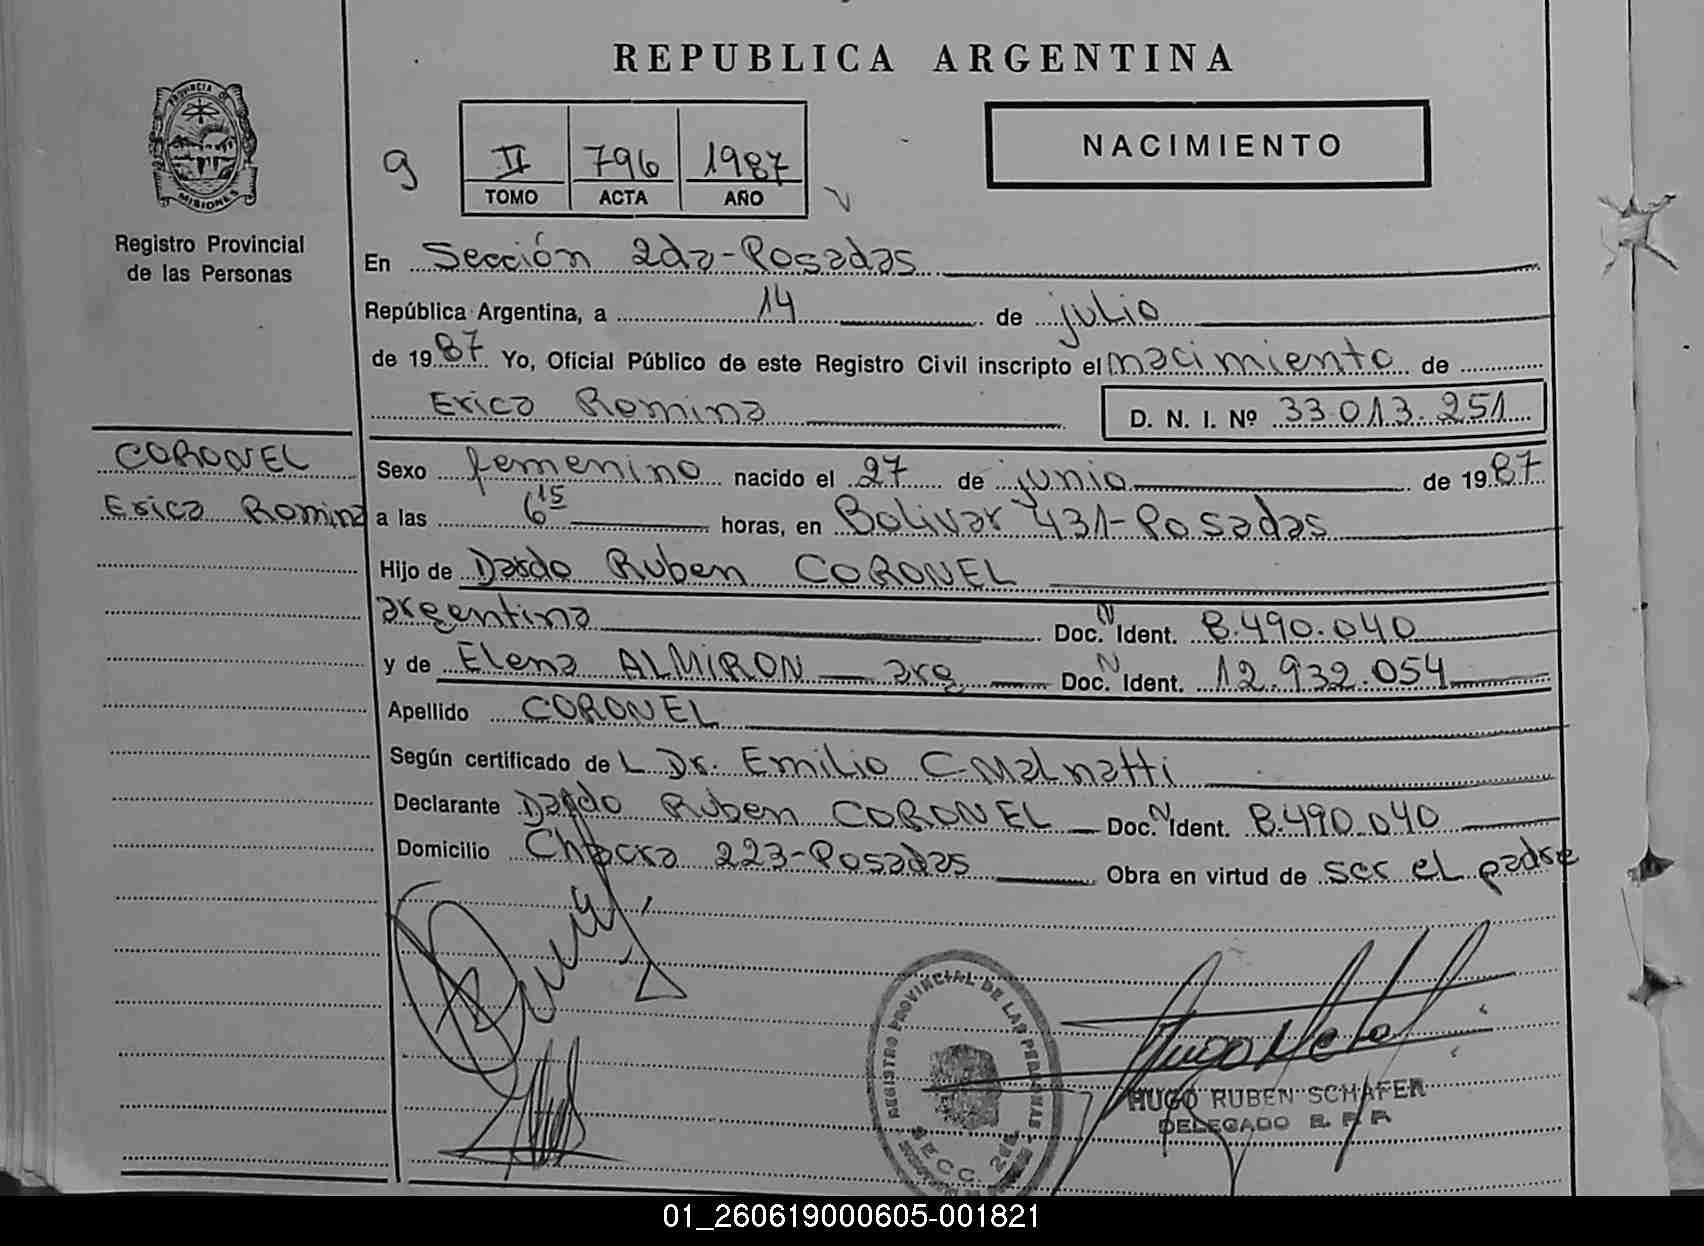 REPUBLICA ARGENTINA
PROVINCIA DE MISIONES
Registro Provincial
de las Personas
9
II 796 1987
TOMO ACTA AÑO
NACIMIENTO
En Sección 2da-Posadas
República Argentina, a 14 de julio
de 1987 Yo, Oficial Público de este Registro Civil inscripto el nacimiento de
Erica Romina D. N. I. Nº 33.013.251
CORONEL
Erica Romina
Sexo femenino nacido el 27 de junio de 1987
a las 6 15 horas, en Bolivar 431-Posadas
Hijo de Dardo Ruben CORONEL
argentina Doc. N Ident. 8.490.040
y de Elena ALMIRON — arg — Doc. N Ident. 12.932.054
Apellido CORONEL
Según certificado de L Dr. Emilio C. Malnatti
Declarante Dardo Ruben CORONEL Doc. N Ident. 8.490.040
Domicilio 223-Posadas Obra en virtud de ser el padre
REGISTRO PROVINCIAL DE LAS PERSONAS
SECC. 2da
HUGO RUBEN SCHAFER
DELEGADO R. P. P.
01_260619000605-001821